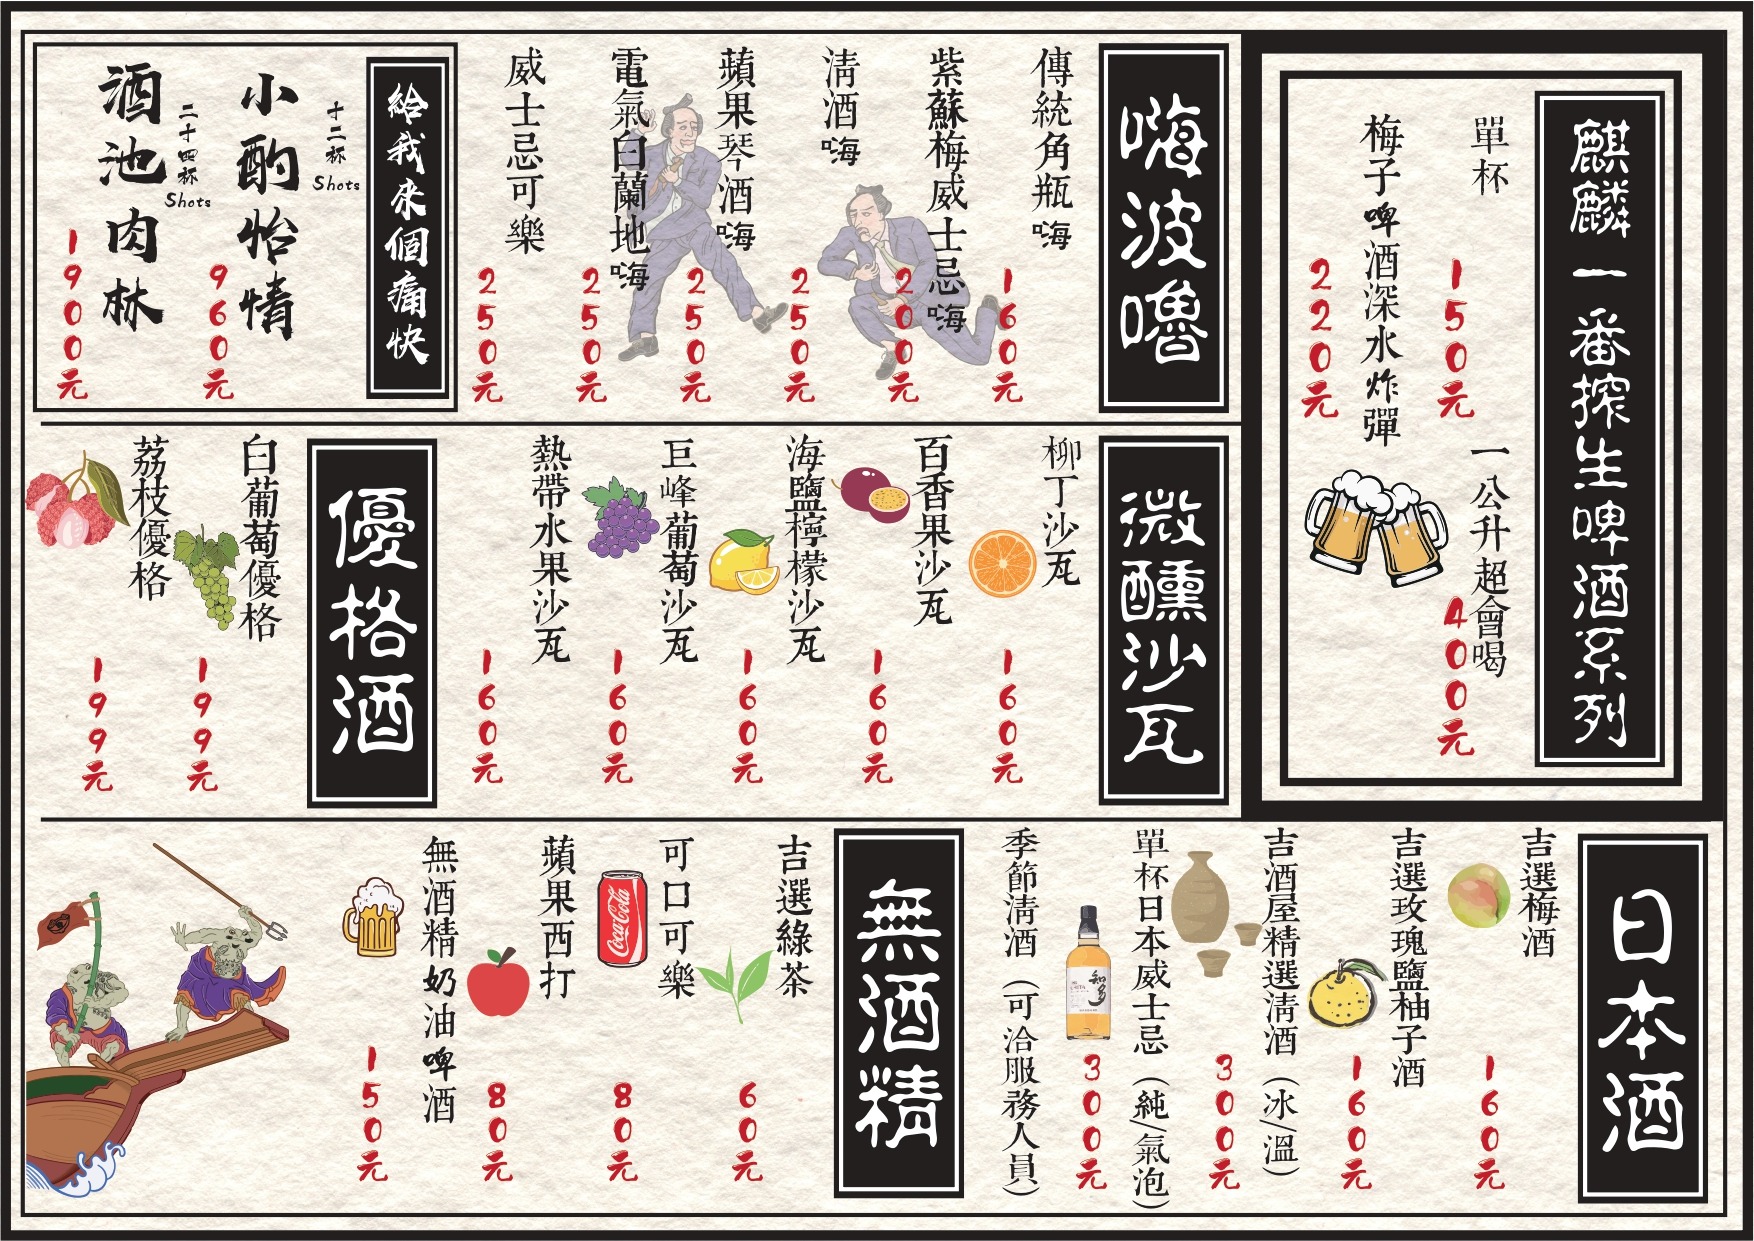 麒麟一番搾生啤酒系列
單杯
150元
一公升超會喝
400元
梅子啤酒深水炸彈
220元
嗨波嚕
傳統角瓶嗨
160元
紫蘇梅威士忌嗨
200元
清酒嗨
250元
蘋果琴酒嗨
250元
電氣白蘭地嗨
250元
威士忌可樂
250元
給我來個痛快
十二杯Shots
小酌怡情
960元
二十四杯Shots
酒池肉林
1900元
微醺沙瓦
柳丁沙瓦
160元
百香果沙瓦
160元
海鹽檸檬沙瓦
160元
巨峰葡萄沙瓦
160元
熱帶水果沙瓦
160元
優格酒
白葡萄優格
199元
荔枝優格
199元
日本酒
吉選梅酒
160元
吉選玫瑰鹽柚子酒
160元
吉酒屋精選清酒(冰/溫)
300元
單杯日本威士忌(純/氣泡)
300元
知多
季節清酒(可洽服務人員)
無酒精
吉選綠茶
60元
可口可樂
80元
Coca-Cola
蘋果西打
80元
無酒精奶油啤酒
150元